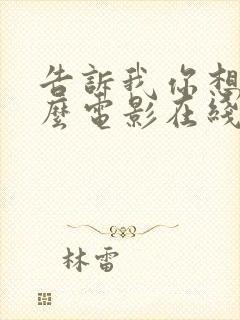 告訴我 你想
麼電影在綫
林雷